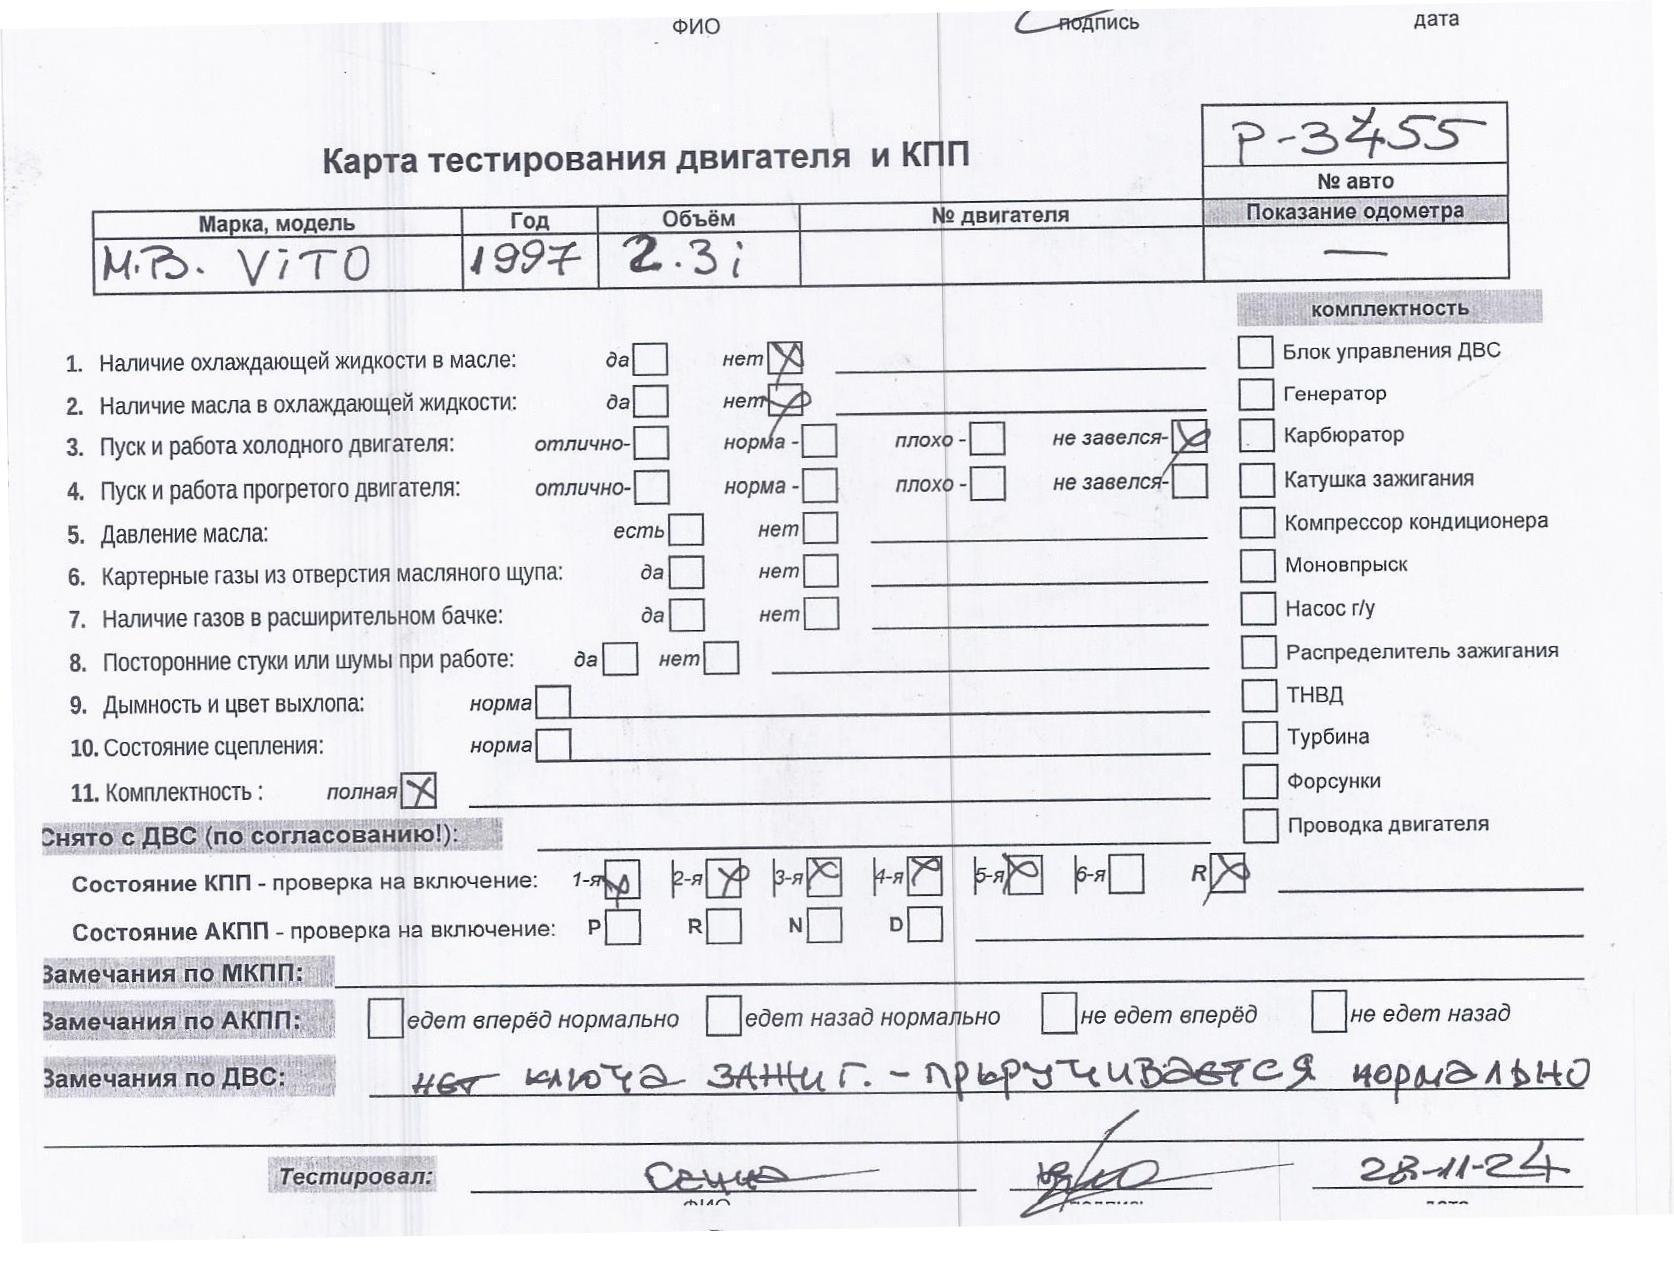 ФИО подпись дата
Р-3455
№ авто
Карта тестирования двигателя и КПП
Марка, модель Год Объём № двигателя Показание одометра
М.В. ViTO 1997 2.3i —
комплектность
1. Наличие охлаждающей жидкости в масле: да нет
Блок управления ДВС
2. Наличие масла в охлаждающей жидкости: да нет
Генератор
3. Пуск и работа холодного двигателя: отлично- норма - плохо - не завелся-
Карбюратор
4. Пуск и работа прогретого двигателя: отлично- норма - плохо - не завелся-
Катушка зажигания
5. Давление масла: есть нет
Компрессор кондиционера
6. Картерные газы из отверстия масляного щупа: да нет
Моновпрыск
7. Наличие газов в расширительном бачке: да нет
Насос г/у
8. Посторонние стуки или шумы при работе: да нет
Распределитель зажигания
9. Дымность и цвет выхлопа: норма
ТНВД
10. Состояние сцепления: норма
Турбина
11. Комплектность : полная
Форсунки
Снято с ДВС (по согласованию!):
Проводка двигателя
Состояние КПП - проверка на включение: 1-я 2-я 3-я 4-я 5-я 6-я R
Состояние АКПП - проверка на включение: P R N D
Замечания по МКПП:
Замечания по АКПП: едет вперёд нормально едет назад нормально не едет вперёд не едет назад
Замечания по ДВС: нет ключа зажиг. - прыручивается нормально
Тестировал: 28-11-24
ФИО подпись дата